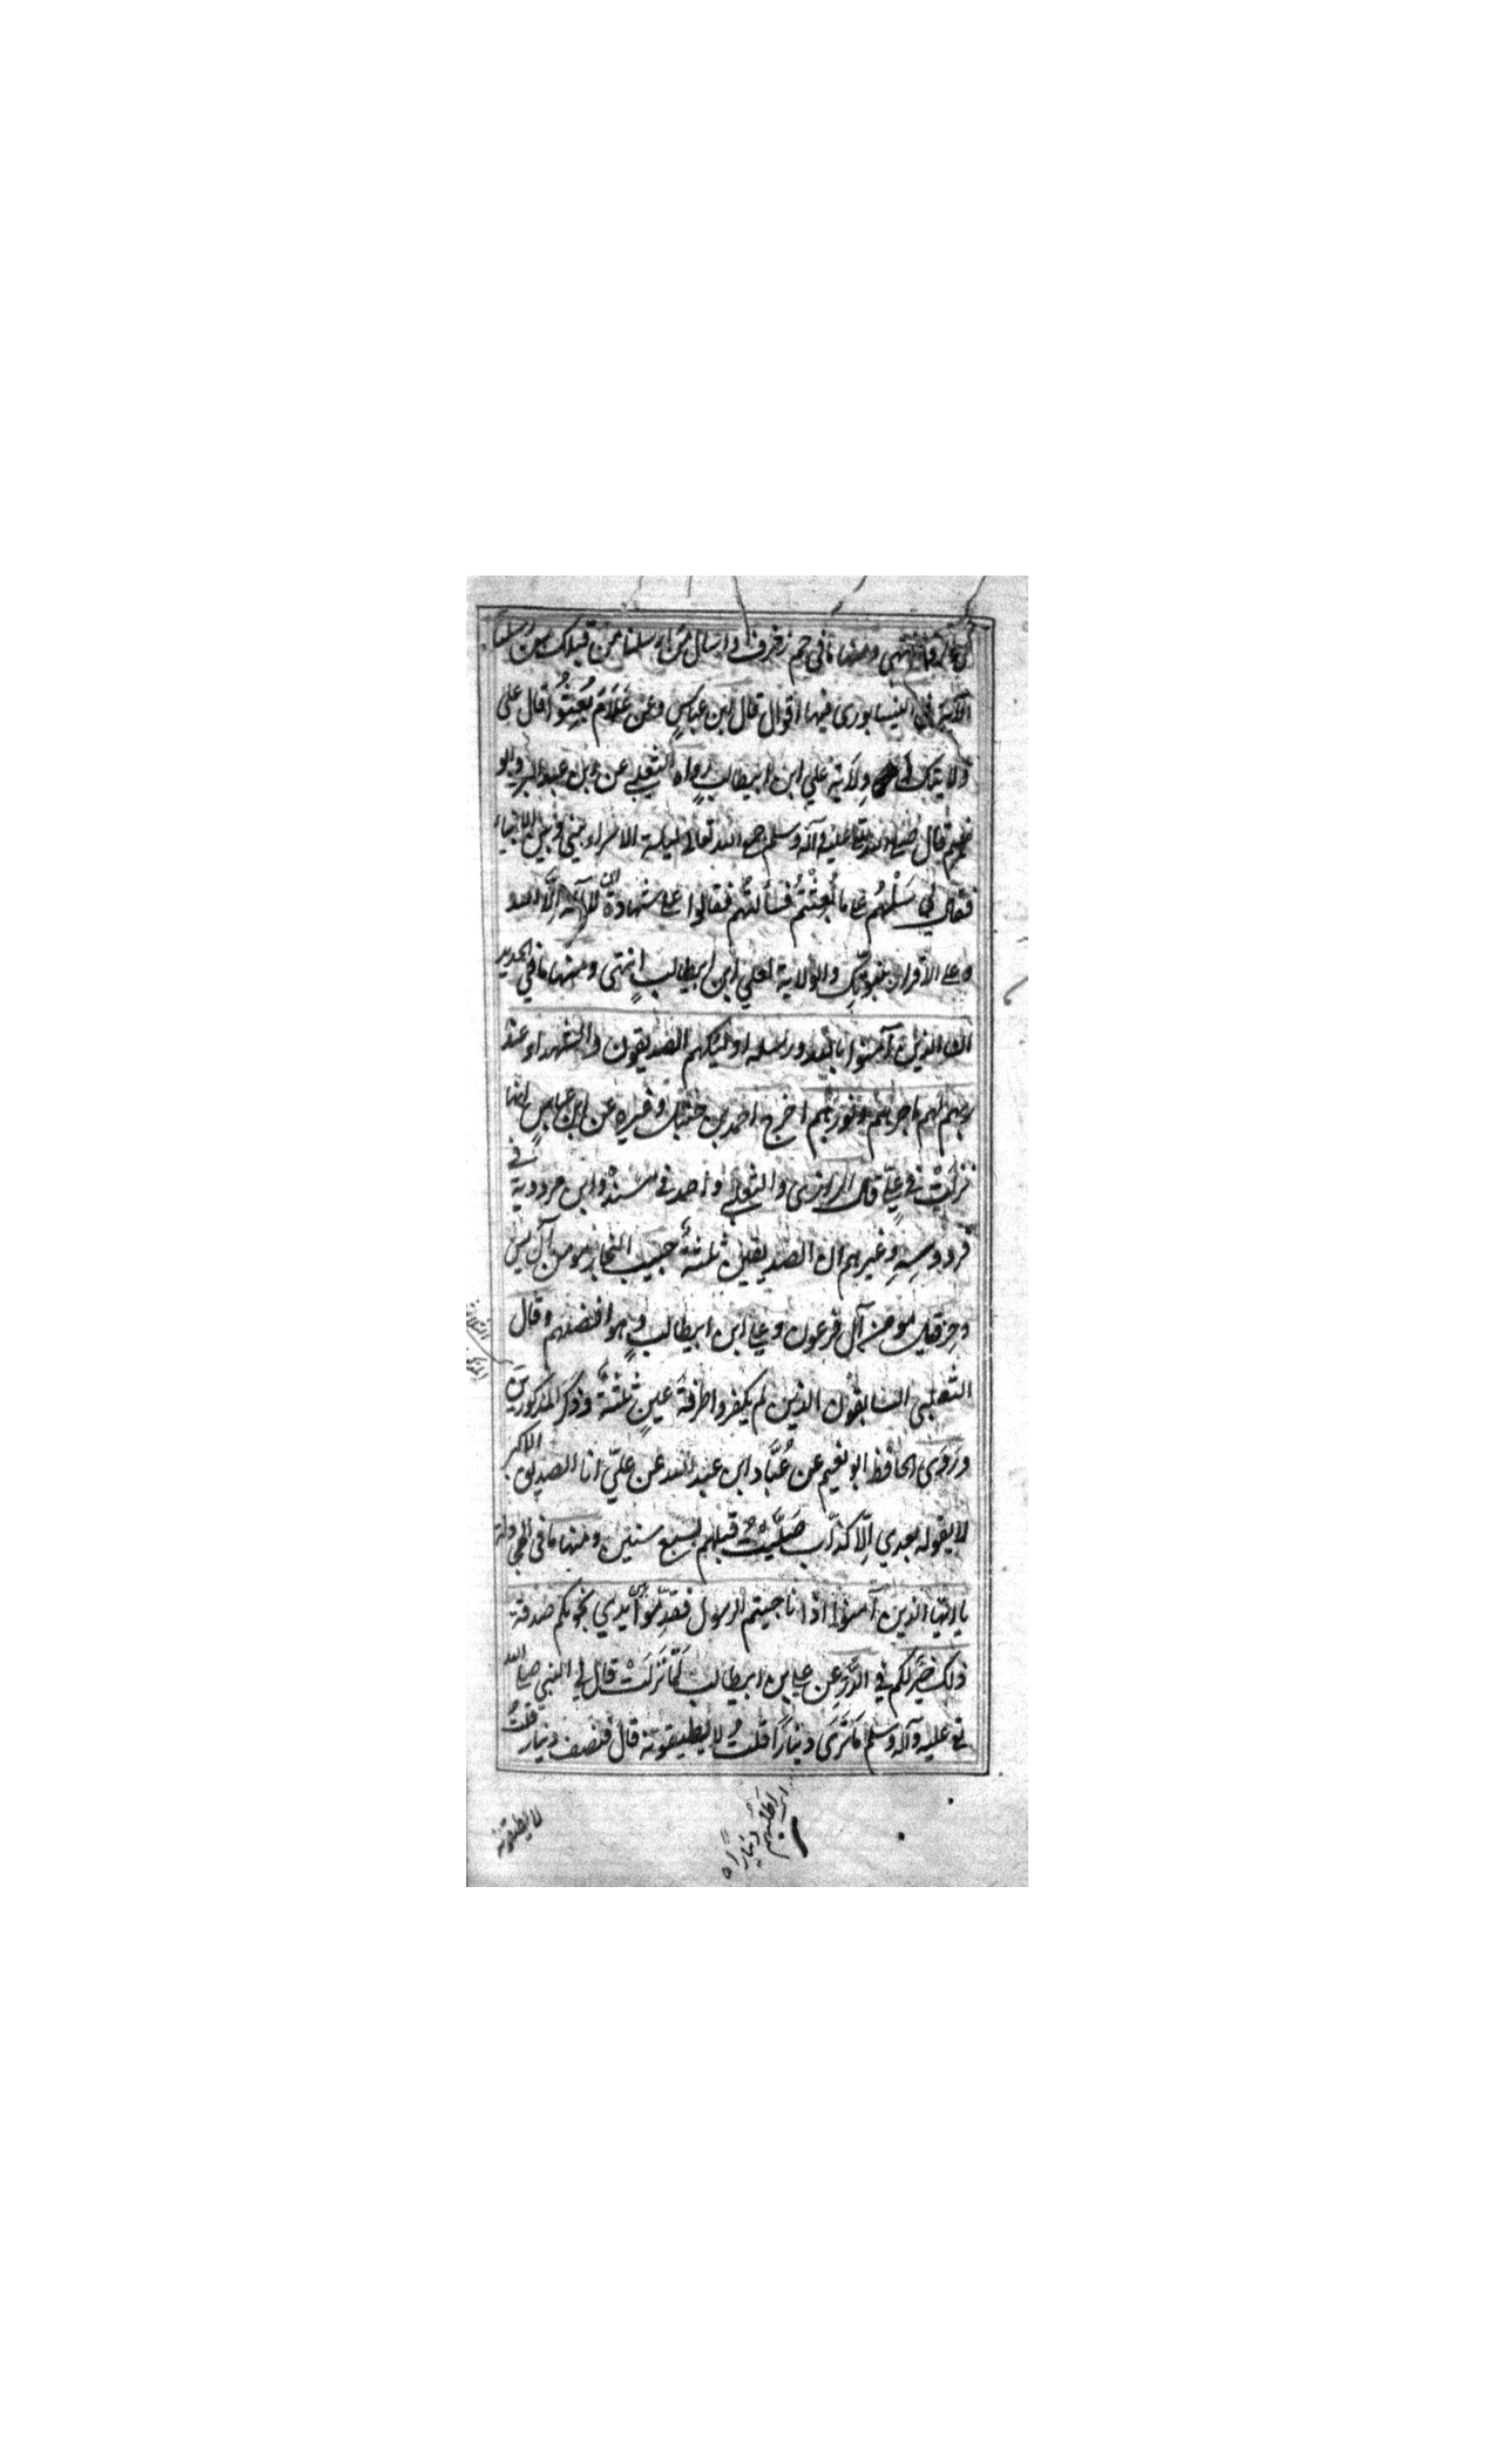 انتهى ومنها ما في حم زخرف واسال من ارسلنا من قبلك من رسلنا
النيسابوري فيها اقوال قال ابن عباس وعن عَلَامَ بُعِثُوا قال على
ولايتك و ولاية علي ابن ابيطالب رواه الثعلبي عن ابن عبد البر وابو
نعيم قال صلى الله تعا عليه وآله وسلم جمع الله تعالى ليلة الاسراء بيني وبين الانبياء
فقال لي سَلْهُم على ما بُعِثْتُم فسألتُهم فقالوا على شهادة ان لا اله الّا الله
وعلى الأقرار بنبوّتك والولاية لعلي ابن ابيطالبٍ انتهى ومنها ما في الحديد
الذين آمنوا بالله ورسله اولئك هم الصديقون والشهداء عند
ربهم لهم اجرهم ونورهم اخرج احمد بن حنبل وغيره عن ابن عباسٍ انها
نزلتْ في عليٍّ قال الرازي والثعلبي واحمد في مسنده وابن مردويه في
فردوسِهِ وغيرهم ان الصديقين ثلثة حبيب النجار مومن آل يس
وحزقيل مومن آل فرعون وعلي ابن ابيطالبٍ وهو افضلهم وقال
الثعلبي السابقون الذين لم يكفروا طرفة عينٍ ثلثة وذكر المذكورين
ورَوَى الحافظ ابو نعيم عن عُبَّاد ابن عبد الله عن عليّ انا الصديق الاكبر
لا يقوله بعدي الّا كذّاب صَلَّيْتُ قبلهم بسبع سنين ومنها ما في المجادلة
يا ايها الذين آمنوا اذا ناجيتم الرسول فقدّموا بين يدي نجوٰكم صدقة
ذلك خيرٌ لكم في الدُّرِ عن علي بن ابيطالب لمّا نَزَلَتْ قال لي النبي صلى الله
تع عليه وآله وسلم مَا تَرَى دينارًا قلتُ لا يطيقونه قال فنصف دينار قلتُ
لا يطيقونه